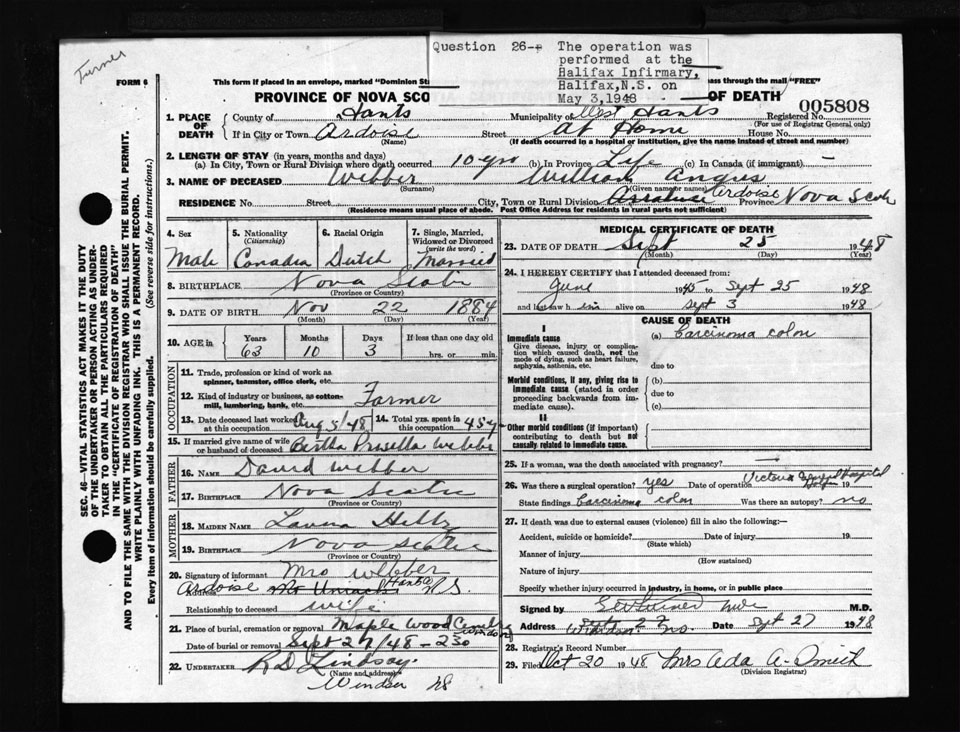 Turner
Question 26-- The operation was
performed at the
Halifax Infirmary,
Halifax, N.S. on
May 3, 1948
FORM 6
This form if placed in an envelope, marked "Dominion St
pass through the mail "FREE"
PROVINCE OF NOVA SCO
OF DEATH
005808
1. PLACE OF DEATH
County of Hants
Municipality of West Hants
Registered No.
(For use of Registrar General only)
If in City or Town Ardoise
(Name)
Street At Home House No.
(If death occurred in a hospital or institution, give the name instead of street and number)
2. LENGTH OF STAY (in years, months and days)
(a) In City, Town or Rural Division where death occurred 10 yrs (b) In Province Life (c) In Canada (if immigrant) -
3. NAME OF DECEASED Webber William Angus
(Surname) (Given name or names)
RESIDENCE No. Street City, Town or Rural Division Ardoise Province Nova Scotia
(Residence means usual place of abode. Post Office Address for residents in rural parts not sufficient)
SEC. 46-VITAL STATISTICS ACT MAKES IT THE DUTY
OF THE UNDERTAKER OR PERSON ACTING AS UNDER-
TAKER TO OBTAIN ALL THE PARTICULARS REQUIRED
IN THE "CERTIFICATE OF REGISTRATION OF DEATH"
AND TO FILE THE SAME WITH THE DIVISION REGISTRAR WHO SHALL ISSUE THE BURIAL PERMIT.
WRITE PLAINLY WITH UNFADING INK. THIS IS A PERMANENT RECORD.
Every item of information should be carefully supplied. (See reverse side for instructions.)
4. Sex
Male
5. Nationality
(Citizenship)
Canadia
6. Racial Origin
Dutch
7. Single, Married,
Widowed or Divorced
(write the word)
Married
8. BIRTHPLACE Nova Scotia
(Province or Country)
9. DATE OF BIRTH Nov 22 1884
(Month) (Day) (Year)
10. AGE in Years Months Days If less than one day old
63 10 3 hrs. or min.
OCCUPATION
11. Trade, profession or kind of work as
spinner, teamster, office clerk, etc.
12. Kind of industry or business, as cotton-
mill, lumbering, bank, etc. Farmer
13. Date deceased last worked
at this occupation Aug 5/48
14. Total yrs. spent in
this occupation 45 y
15. If married give name of wife
or husband of deceased Bertha Prusella Webber
FATHER
16. NAME David Webber
17. BIRTHPLACE Nova Scotia
(Province or Country)
MOTHER
18. MAIDEN NAME Lavina
19. BIRTHPLACE Nova Scotia
(Province or Country)
20. Signature of informant Mrs Webber
Ardoise Mt Uniacke Hants N.S.
Relationship to deceased wife
21. Place of burial, cremation or removal Maple Wood Windsor
Date of burial or removal Sept 27/48 - 230
22. UNDERTAKER R D Lindsay
(Name and address)
Windsor NS
MEDICAL CERTIFICATE OF DEATH
23. DATE OF DEATH Sept 25 1948
(Month) (Day) (Year)
24. I HEREBY CERTIFY that I attended deceased from:
June 1945 to Sept 25 1948
and last saw h im alive on Sept 3 1948
CAUSE OF DEATH
I
Immediate cause
Give disease, injury or complica-
tion which caused death, not the
mode of dying, such as heart failure,
asphyxia, asthenia, etc.
(a) Carcinoma colon
due to
Morbid conditions, if any, giving rise to
immediate cause (stated in order
proceeding backwards from im-
mediate cause).
(b)
due to
(c)
II
Other morbid conditions (if important)
contributing to death but not
causally related to immediate cause.
25. If a woman, was the death associated with pregnancy? -
26. Was there a surgical operation? yes Date of operation Victoria General Hospital 19
State findings Carcinoma colon Was there an autopsy? no
27. If death was due to external causes (violence) fill in also the following:-
Accident, suicide or homicide? Date of injury 19
(State which)
Manner of injury
(How sustained)
Nature of injury
Specify whether injury occurred in industry, in home, or in public place
Signed by M.D.
Address Windsor N.S. Date Sept 27 1948
28. Registrar's Record Number
29. Filed Oct 20 1948 Mrs Ada A. Smith
(Division Registrar)